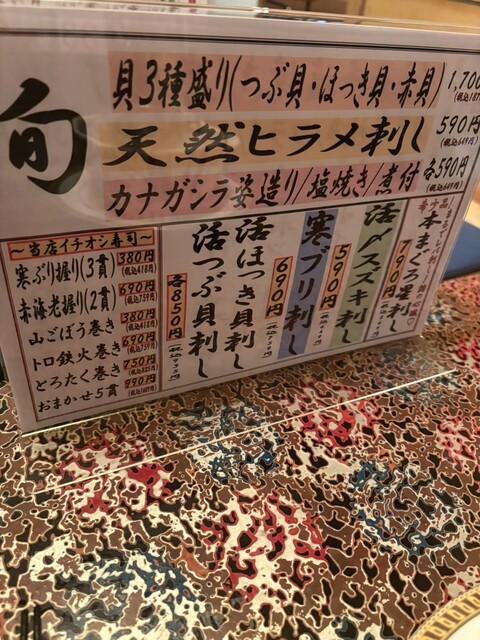 旬
貝3種盛り(つぶ貝・ほっき貝・赤貝)
1,700
天然ヒラメ刺し
590円
(税込649円)
カナガシラ姿造り/塩焼き/煮付
各590円
(税込649円)
本まぐろ星刺し
790円
活〆スズキ刺し
590円
寒ブリ刺し
690円
活ほっき貝刺し
活つぶ貝刺し
各850円
～当店イチオシ寿司～
寒ぶり握り(3貫)
380円
(税込418円)
赤海老握り(2貫)
690円
(税込759円)
山ごぼう巻き
380円
(税込418円)
トロ鉄火巻き
690円
(税込759円)
とろたく巻き
750円
(税込825円)
おまかせ5貫
990円